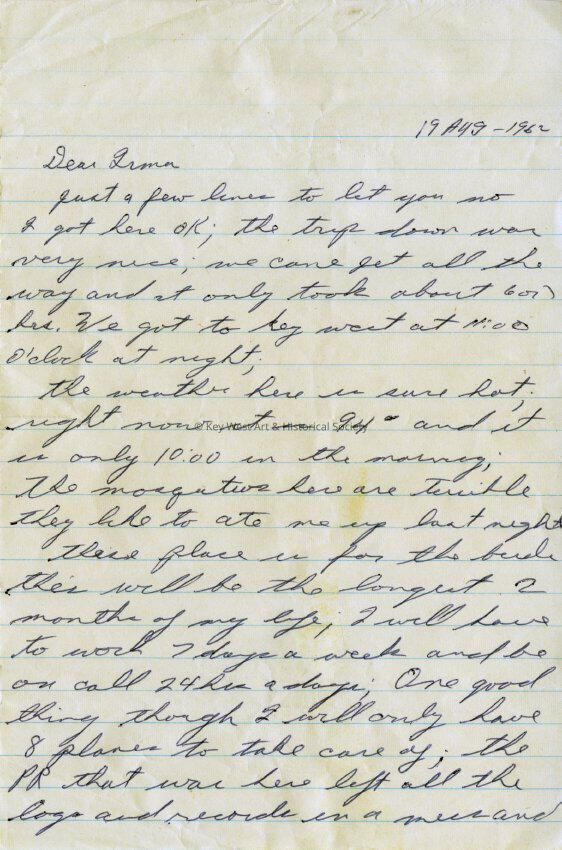 19 AUG - 1962
Dear Irma
just a few lines to let you no
I got here OK; the trip down was
very nice; we came jet all the
way and it only took about 6 or 7
hrs. We got to Key west at 11:00
O'clock at night;
the weather here is sure hot;
right now it 94° and it
© Key West Art & Historical Society
is only 10:00 in the morning;
The mosquitos here are terrible
they like to ate me up last night
these place is for the birds
this will be the longest 2
months of my life; I will have
to work 7 days a week and be
on call 24 hrs a days; One good
thing though I will only have
8 planes to take care of; the
PR that was here left all the
logs and records in a mess and